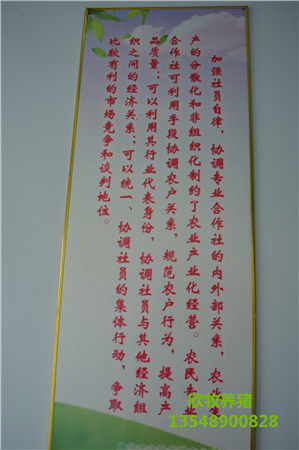 加强社员自律,协调专业合作社的内外部关系,农业生
产的分散化和非组织化制约了农业产业化经营。农民专业
合作社可利用手段协调农户关系,规范农户行为,提高产
品质量;可以利用其行业代表身份,协调社员与其他经济组
织之间的经济关系;可以统一、协调社员的集体行动,争取
比较有利的市场竞争和谈判地位。
欣牧养猪
13548900828